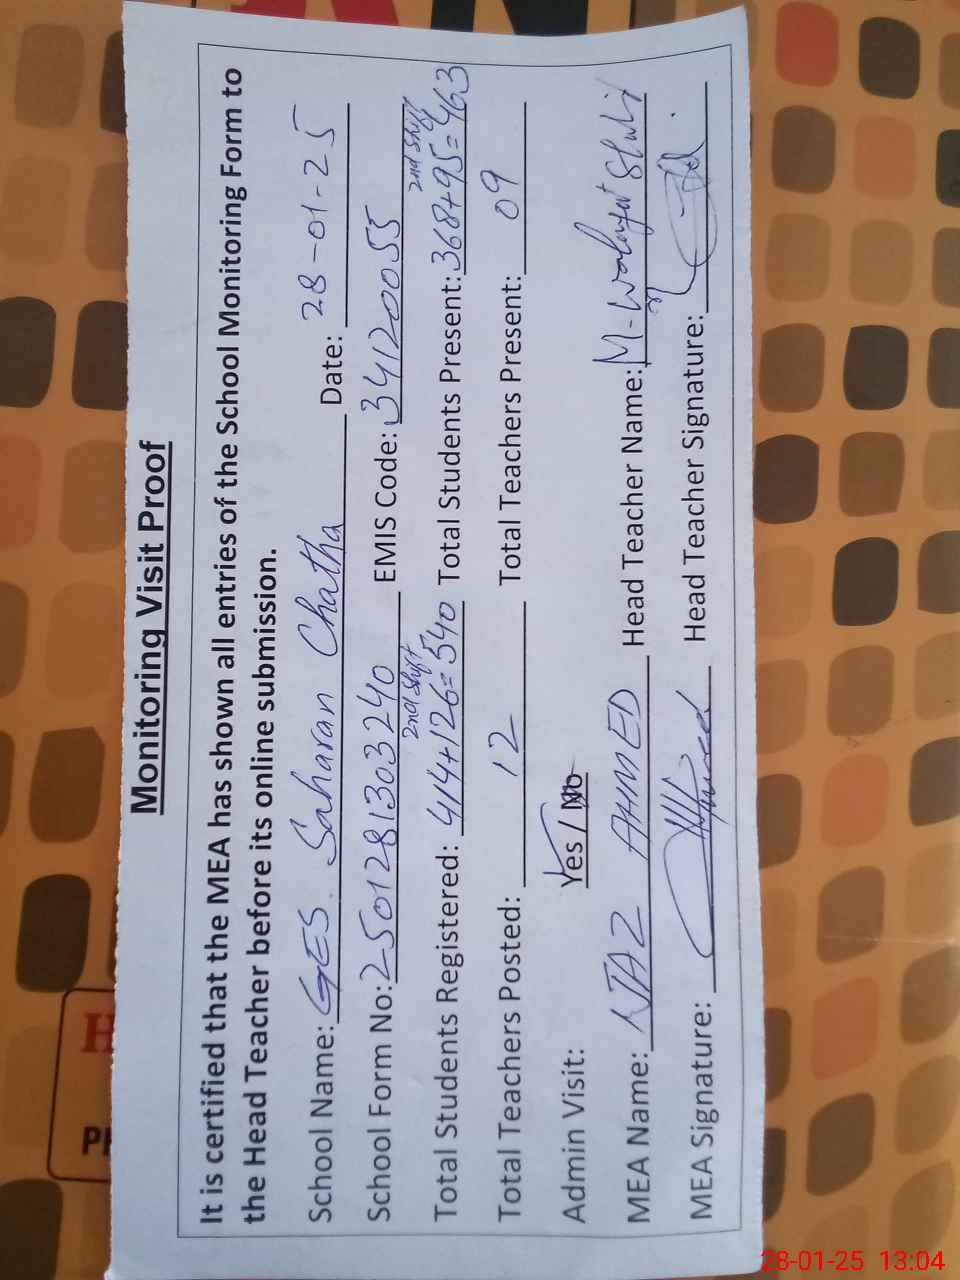 Monitoring Visit Proof
It is certified that the MEA has shown all entries of the School Monitoring Form to
the Head Teacher before its online submission.
School Name: GES. Saharan Chatha Date: 28-01-25
School Form No: 2501281303240 EMIS Code: 34120055
2nd Shift 2nd Shift
Total Students Registered: 414+126=540 Total Students Present: 368+95=463
Total Teachers Posted: 12 Total Teachers Present: 09
Admin Visit: Yes / No
MEA Name: NJAZ AHMED Head Teacher Name: M-
MEA Signature: Head Teacher Signature:
H
PH
28-01-25 13:04